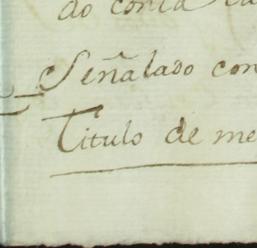 do conta
Señalado con
Titulo de me